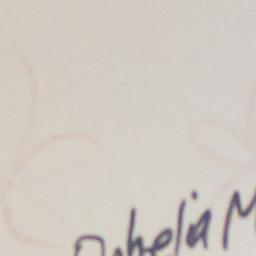 Ophelia M